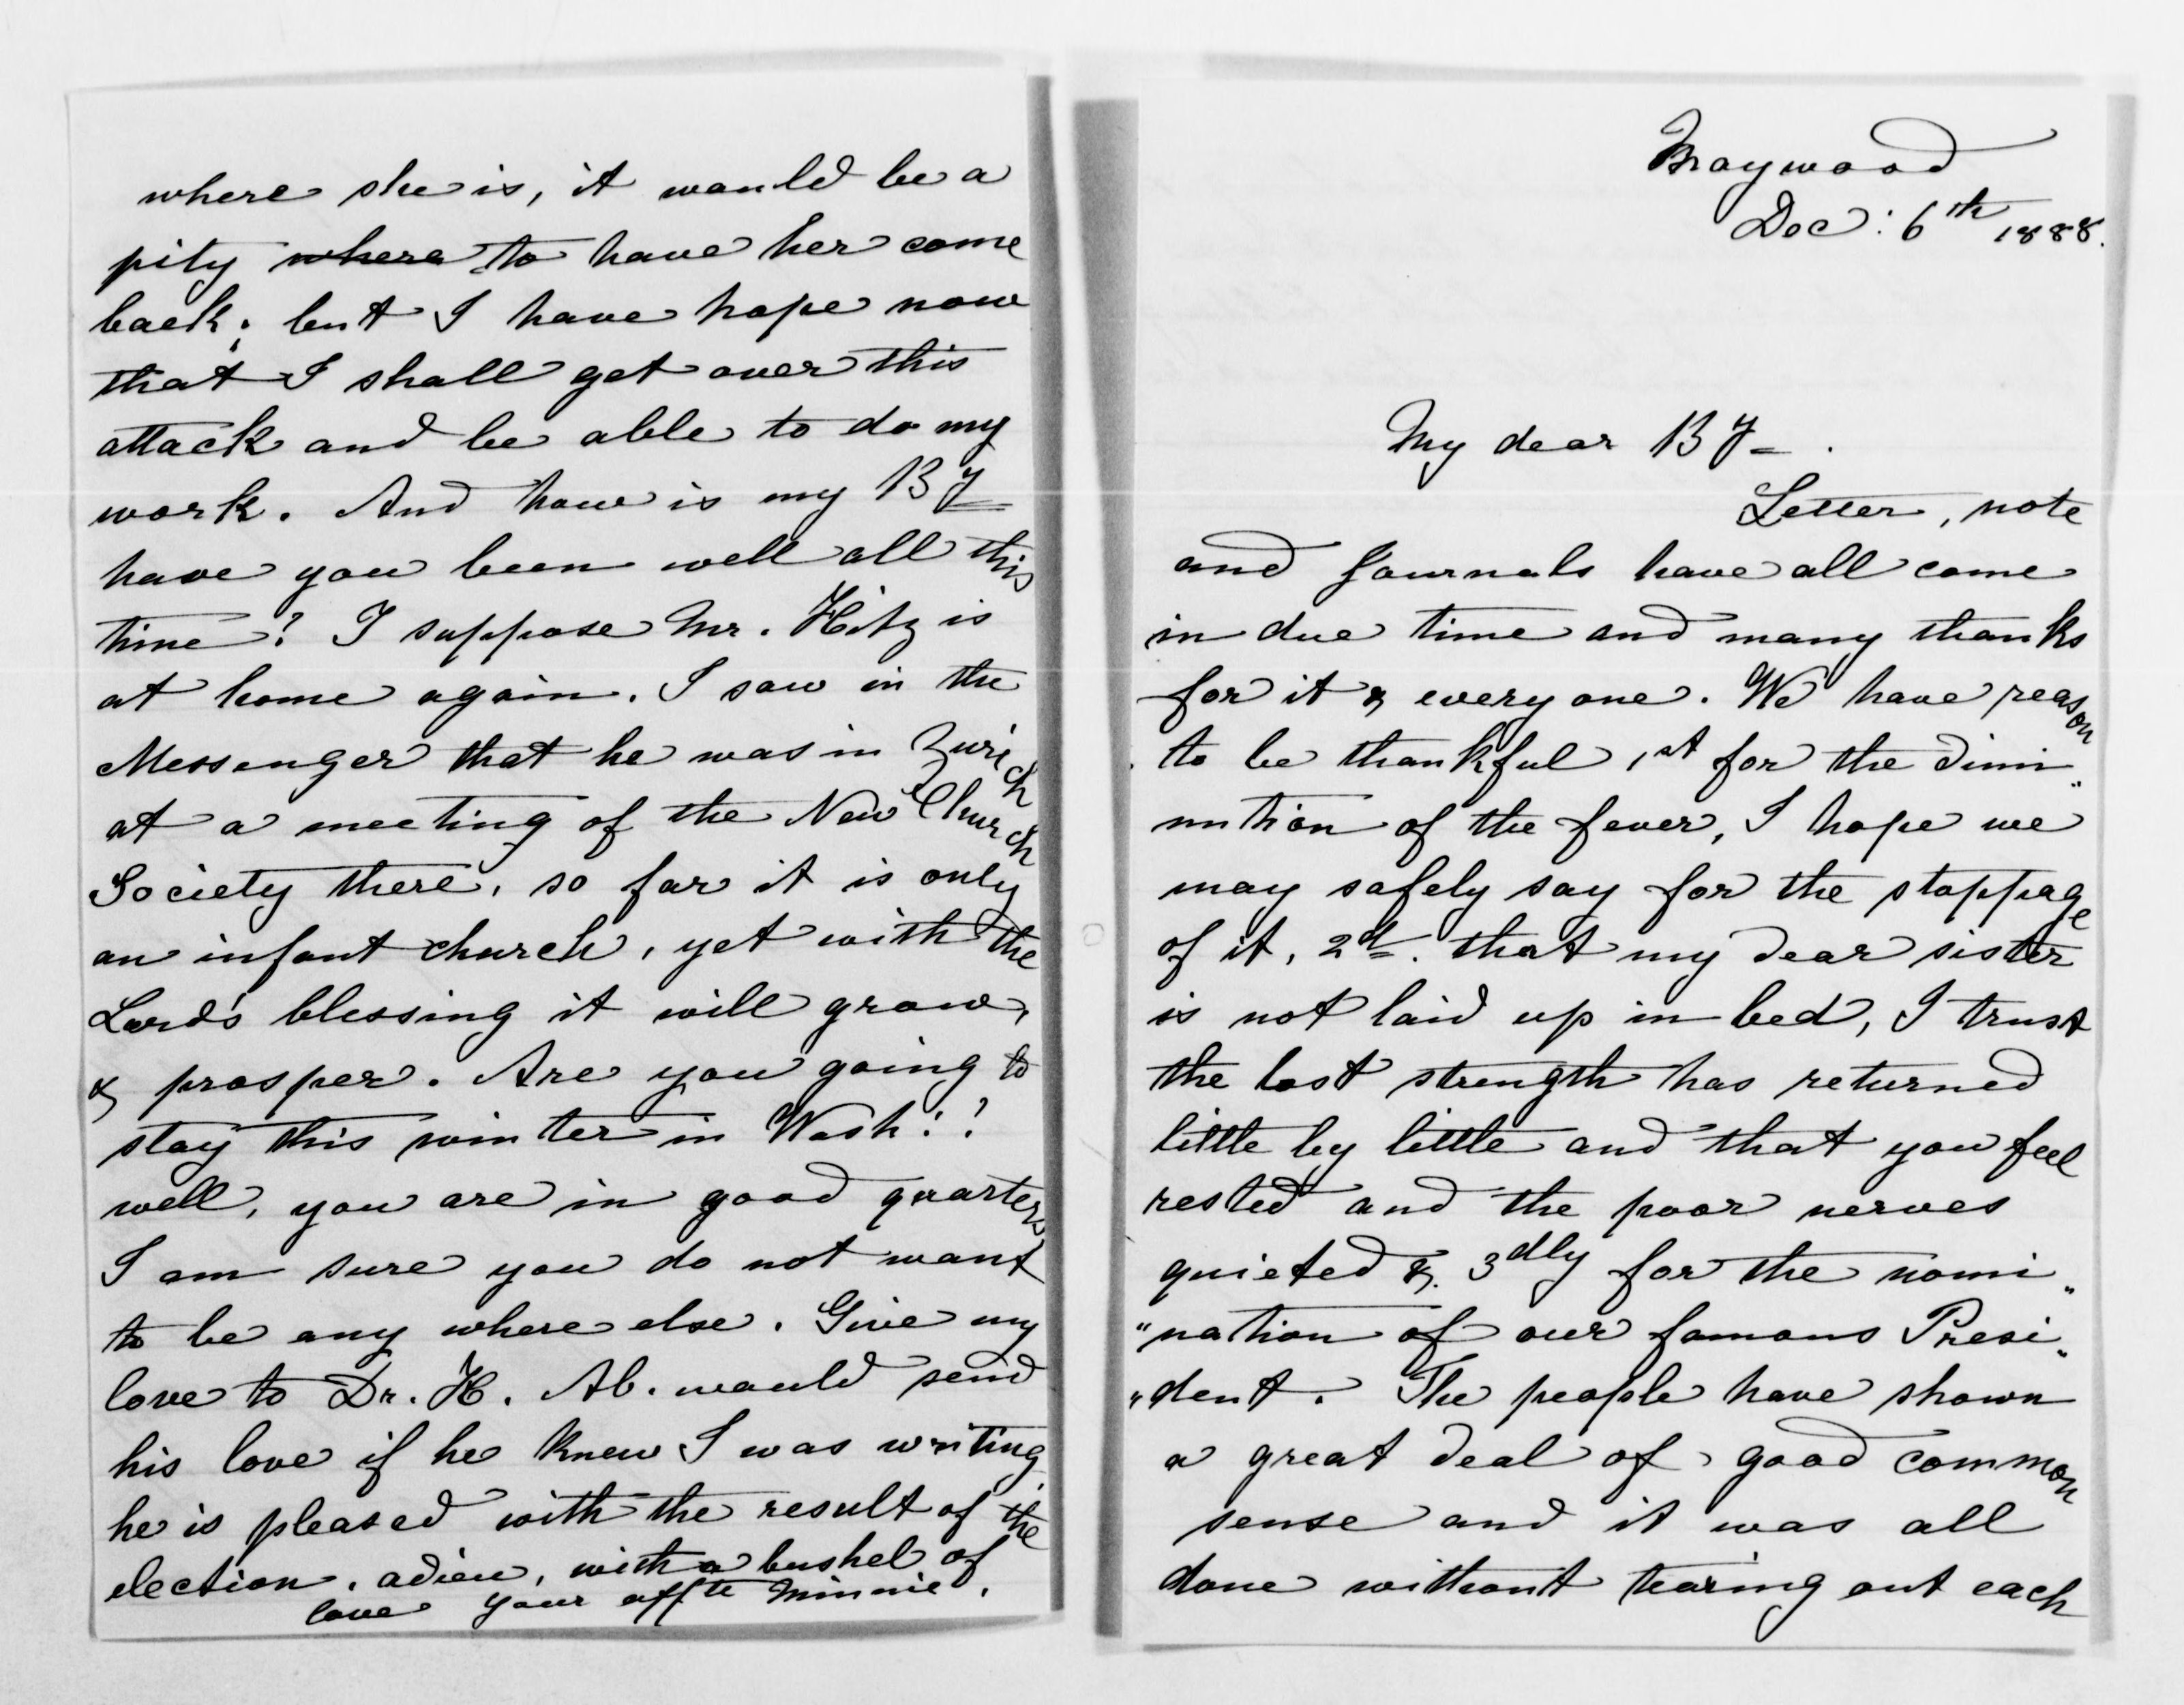 where she is, it would be a
pity where to have her come
back; but I have hope now
that I shall get over this
attack and be able to do my
work. And how is my By
have you been well all this
time? I suppose Mr. Hitz is
at home again. I saw in the
Messenger that he was in Zurich
at a meeting of the New Church
Society there, so far it is only
an infant church, yet with the
Lord's blessing it will grow,
& prosper. Are you going to
stay this winter in Wash:?
well, you are in good quarters
I am sure you do not want
to be any where else. Give my
love to Dr. H. Ab. would send
his love if he knew I was writing
he is pleased with the result of the
election. adieu, with a bushel of
love your affte Minnie.
Maywood
Dec: 6th 1888.
My dear By.
Letter, note
and Journals have all come
in due time and many thanks
for it & every one. We have reason
to be thankful 1st for the dimi„
nution of the fever, I hope we
may safely say for the stoppage
of it, 2d. that my dear sister
is not laid up in bed, I trust
the lost strength has returned
little by little and that you feel
rested and the poor nerves
quieted &. 3dly for the nomi„
"nation of our famous Presi„
"dent. The people have shown
a great deal of good common
sense and it was all
done without tearing out each